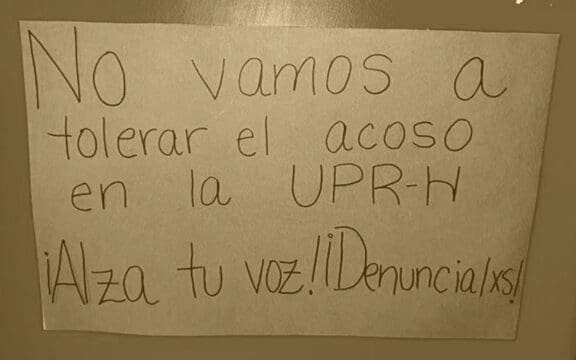 No vamos a
tolerar el acoso
en la UPR-H
¡Alza tu voz! ¡Denuncialxs!